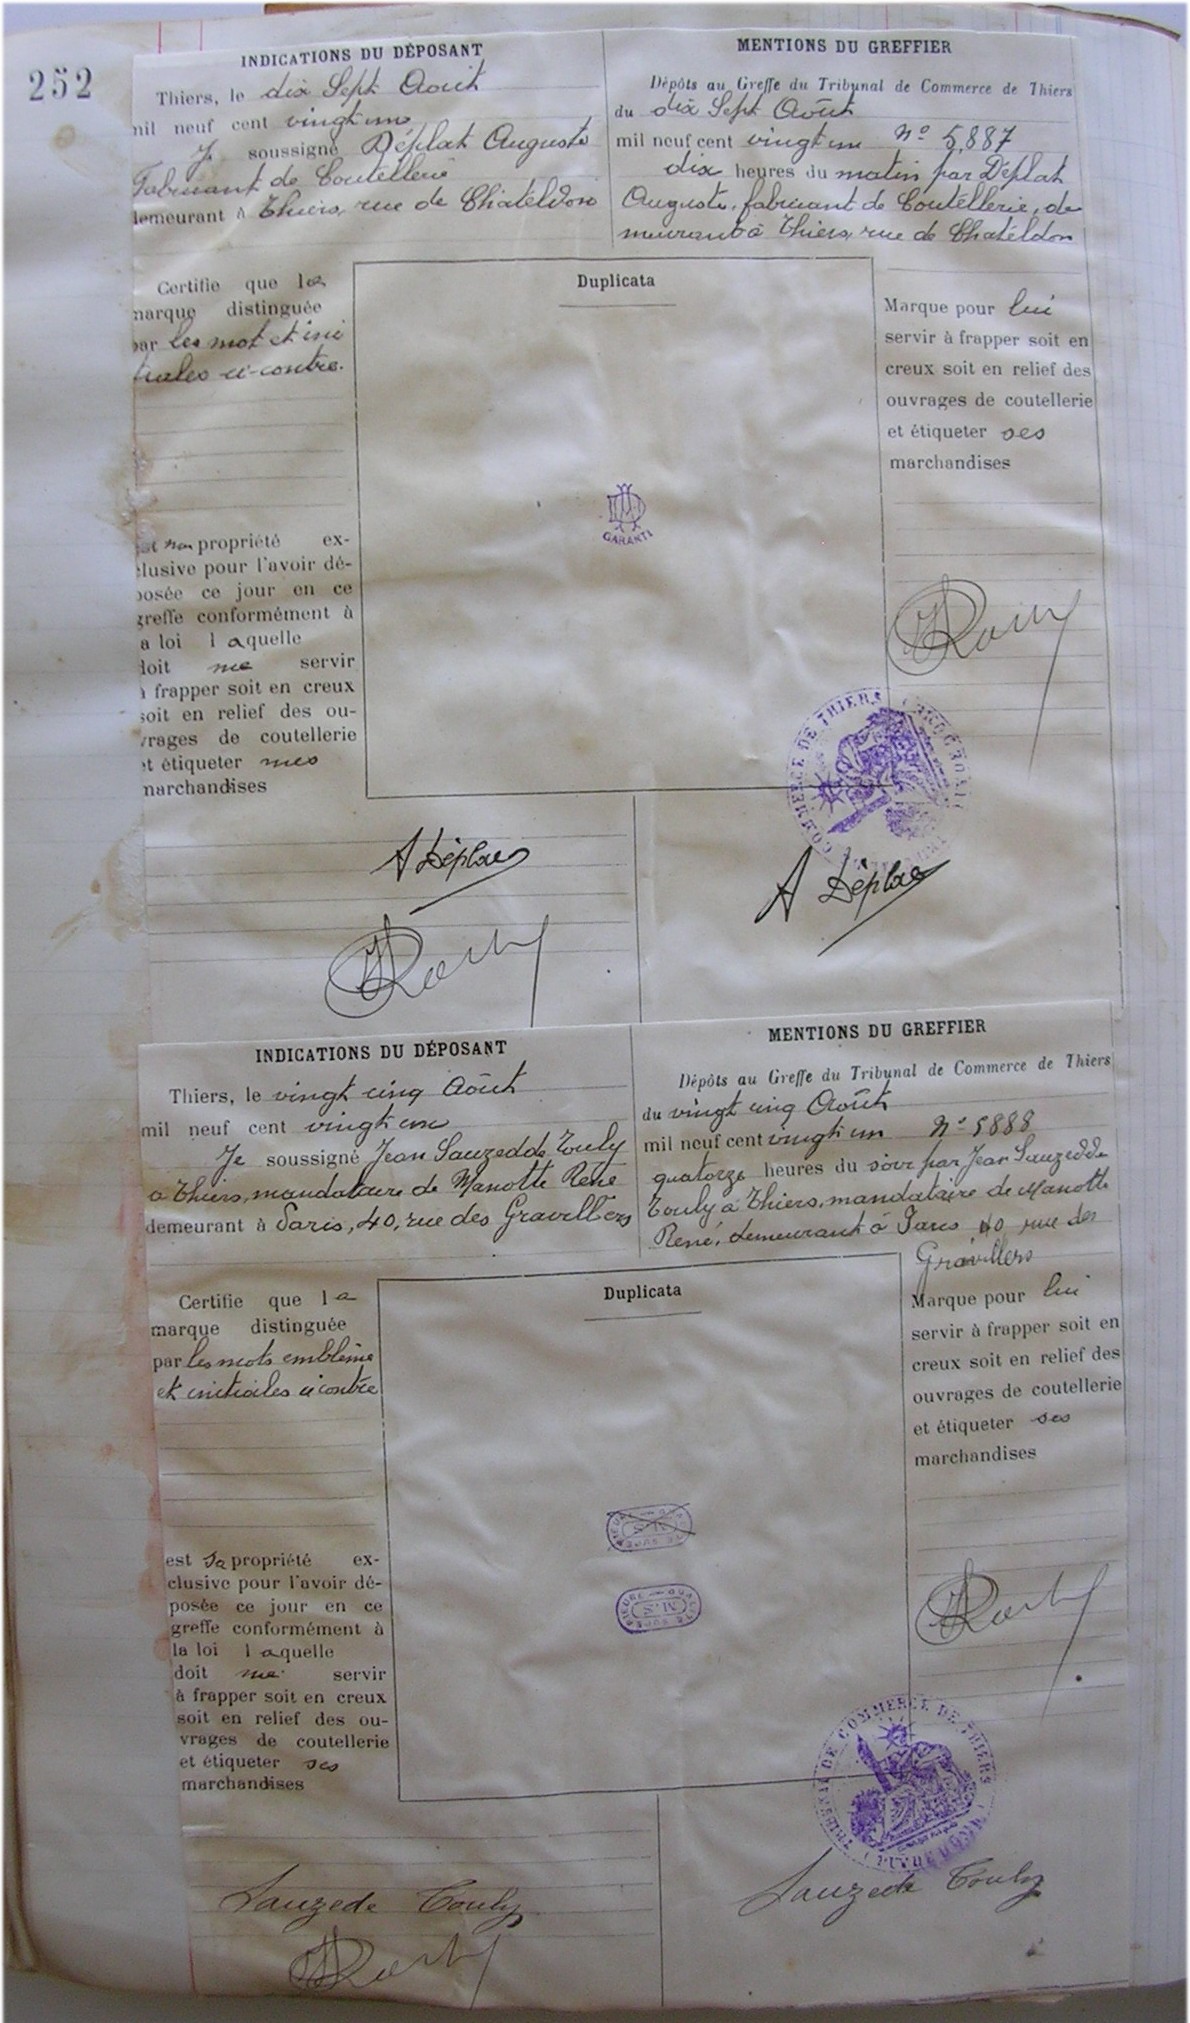 252
INDICATIONS DU DÉPOSANT
Thiers, le dix Sept Août
mil neuf cent vingt un
Je soussigné Déplat Auguste
Fabricant de Coutellerie
demeurant à Thiers, rue de Chateldon
MENTIONS DU GREFFIER
Dépôts au Greffe du Tribunal de Commerce de Thiers
du dix Sept Août
mil neuf cent vingt un No 5,887
dix heures du matin par Déplat
Auguste, fabricant de Coutellerie, de
meurant à Thiers, rue de Chateldon
Certifie que la
marque distinguée
par les mot et ini
tiales ci-contre.
est ma propriété ex-
clusive pour l'avoir dé-
posée ce jour en ce
greffe conformément à
la loi laquelle
doit me servir
à frapper soit en creux
soit en relief des ou-
vrages de coutellerie
et étiqueter mes
marchandises
Duplicata
GARANTI
Marque pour lui
servir à frapper soit en
creux soit en relief des
ouvrages de coutellerie
et étiqueter ses
marchandises
COMMERCE DE THIERS
A Déplat
A Déplat
INDICATIONS DU DÉPOSANT
Thiers, le vingt cinq Août
mil neuf cent vingt un
Je soussigné Jean Sauzedde Touly
à Thiers, mandataire de Manotte René
demeurant à Paris, 40, rue des Gravilliers
MENTIONS DU GREFFIER
Dépôts au Greffe du Tribunal de Commerce de Thiers
du vingt cinq Août
mil neuf cent vingt un No 5888
quatorze heures du soir par Jean Sauzedde
Touly à Thiers, mandataire de Manotte
René, demeurant à Paris 40 rue des
Gravillers
Certifie que la
marque distinguée
par les mots emblème
et initiales ci contre
est sa propriété ex-
clusive pour l'avoir dé-
posée ce jour en ce
greffe conformément à
la loi laquelle
doit me servir
à frapper soit en creux
soit en relief des ou-
vrages de coutellerie
et étiqueter ses
marchandises
Duplicata
Marque pour lui
servir à frapper soit en
creux soit en relief des
ouvrages de coutellerie
et étiqueter ses
marchandises
TRIBUNAL DE COMMERCE DE THIERS
Sauzede Touly
Sauzede Touly